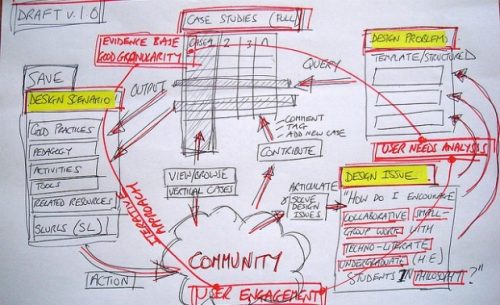 DRAFT v.1.0
CASE STUDIES (FULL)
CASE 1 2 3 n
EVIDENCE BASE
GOOD GRANULARITY
DESIGN PROBLEM
TEMPLATE/STRUCTURED
SAVE
DESIGN SCENARIO
GOOD PRACTICES
PEDAGOGY
ACTIVITIES
TOOLS
RELATED RESOURCES
SLURLS (SL)
OUTPUT
QUERY
- COMMENT
- TAG
- ADD NEW CASE
CONTRIBUTE
VIEW/BROWSE
VERTICAL CASES
ITERATIVE
APPROACH
USER NEEDS ANALYSIS
ARTICULATE
SOLVE
DESIGN
ISSUES
DESIGN ISSUE
"HOW DO I ENCOURAGE
COLLABORATIVE SMALL-
GROUP WORK WITH
TECHNO-LITERATE
UNDERGRADUATE (H.E)
STUDENTS IN PHILOSOPHY?"
COMMUNITY
ACTION
USER ENGAGEMENT